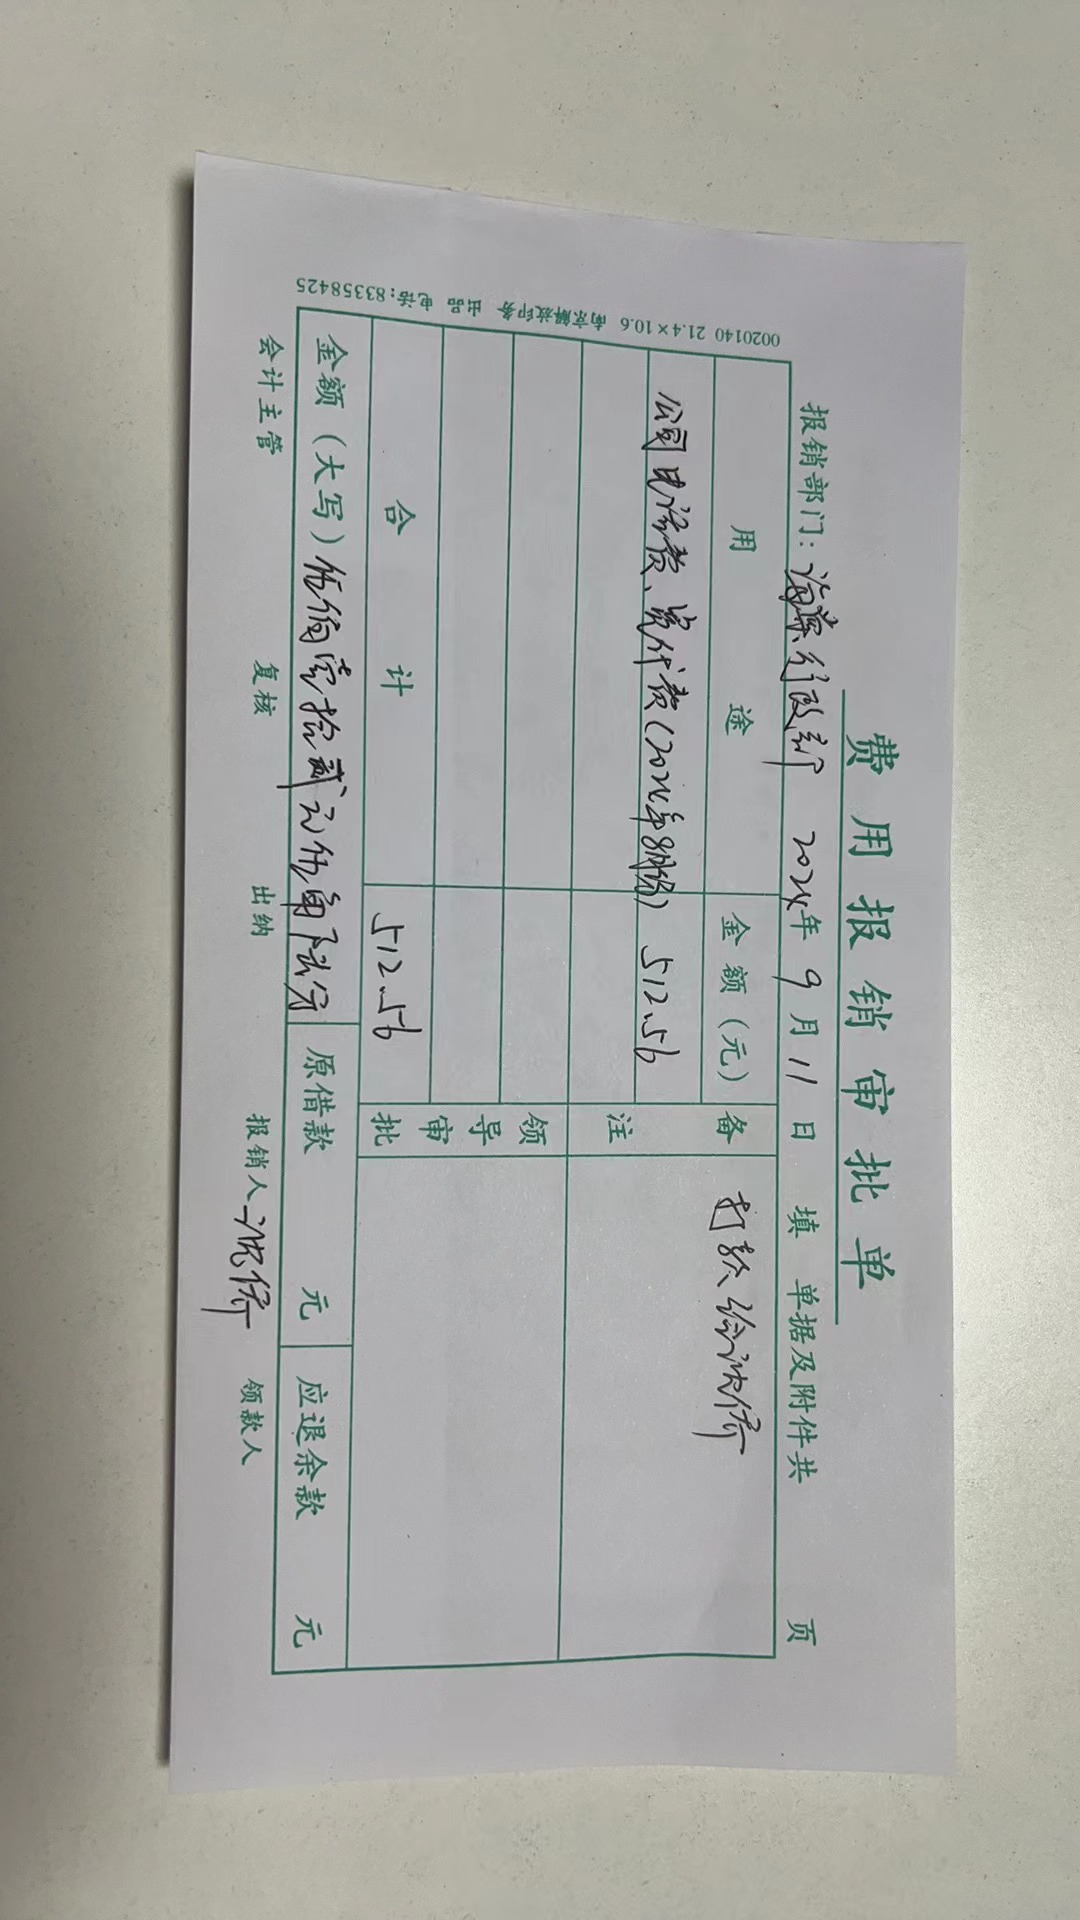 费用报销审批单
报销部门：海景行政部 2024年9月11日 填 单据及附件共 页
用途 金额（元） 备注 打款给沈侨
公司电话费、宽代费（2024年8月份） 512.56
领导审批
合计 512.56
金额（大写）伍佰壹拾贰元伍角陆分 原借款 元 应退余款 元
会计主管 复核 出纳 报销人 沈侨 领款人
0020140 21.4×10.6 南京解放印务 出品 电话：83358425